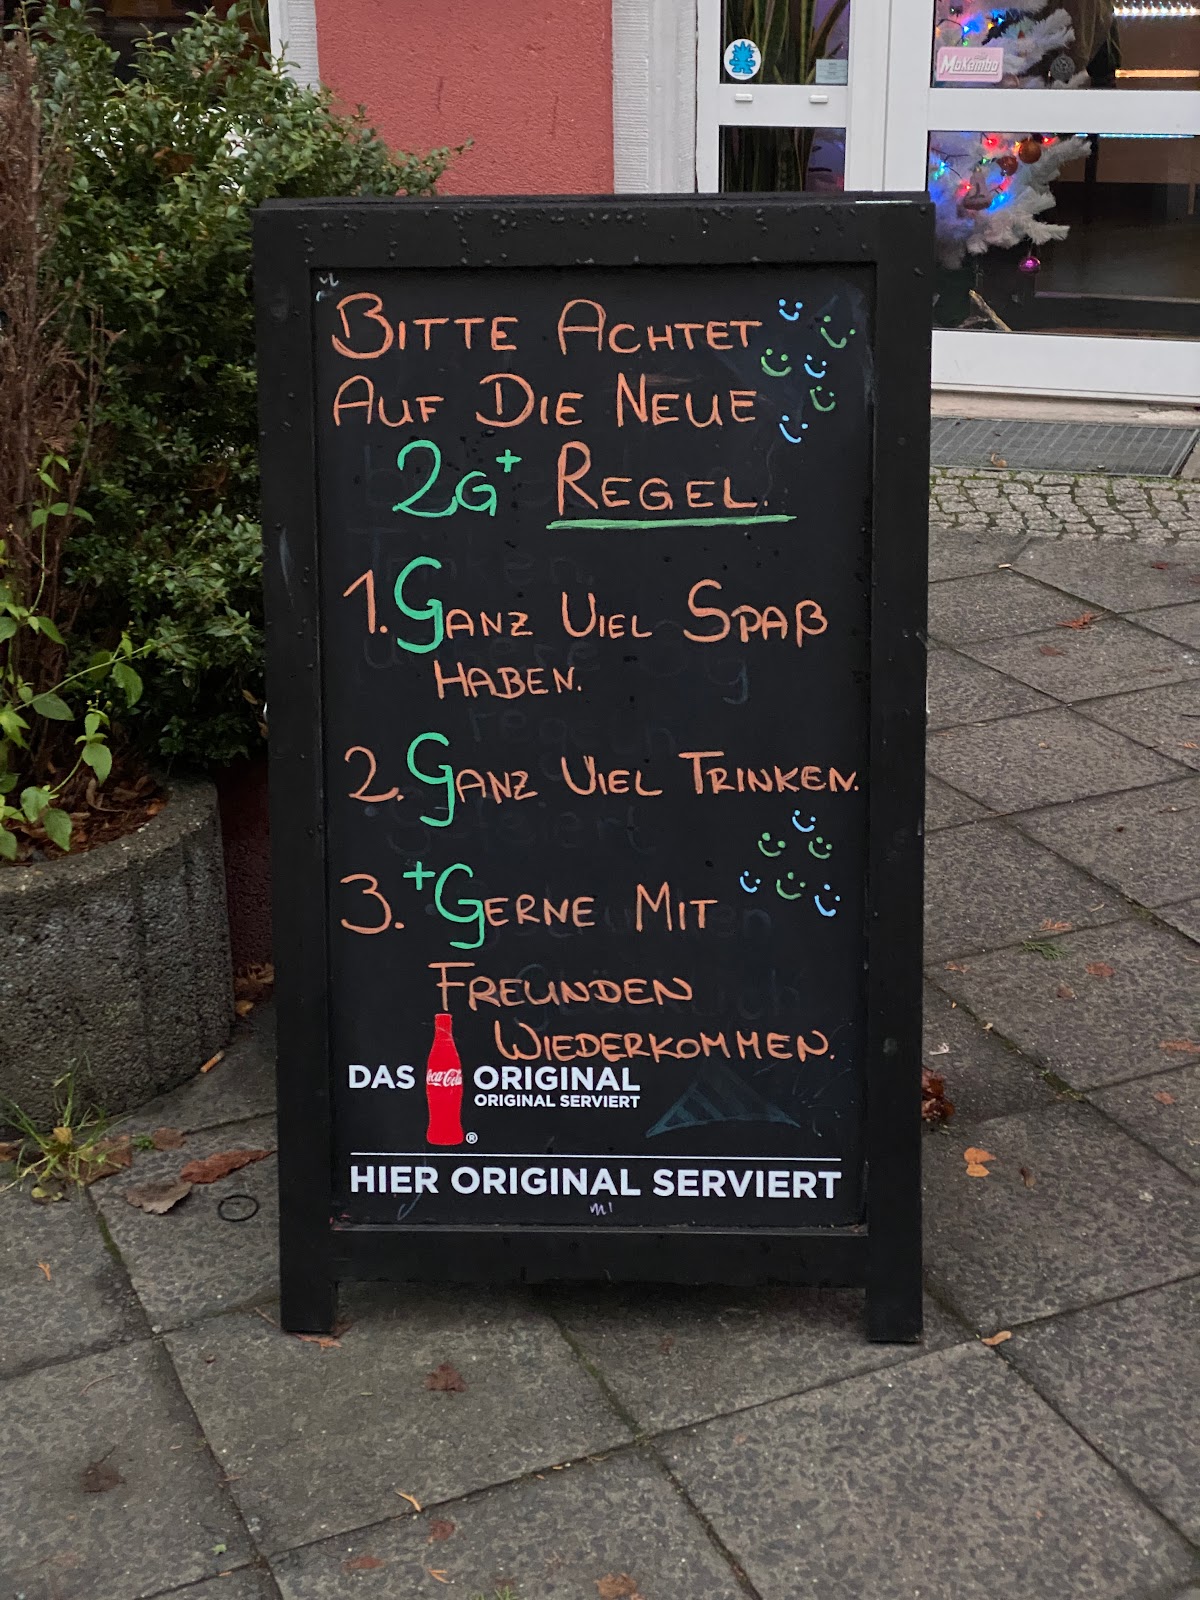 Mokambo
BITTE ACHTET
AUF DIE NEUE
2G+ REGEL.
1. GANZ VIEL SPAß
HABEN.
2. GANZ VIEL TRINKEN.
3. +GERNE MIT
FREUNDEN
WIEDERKOMMEN.
DAS Coca-Cola ORIGINAL
ORIGINAL SERVIERT
®
HIER ORIGINAL SERVIERT